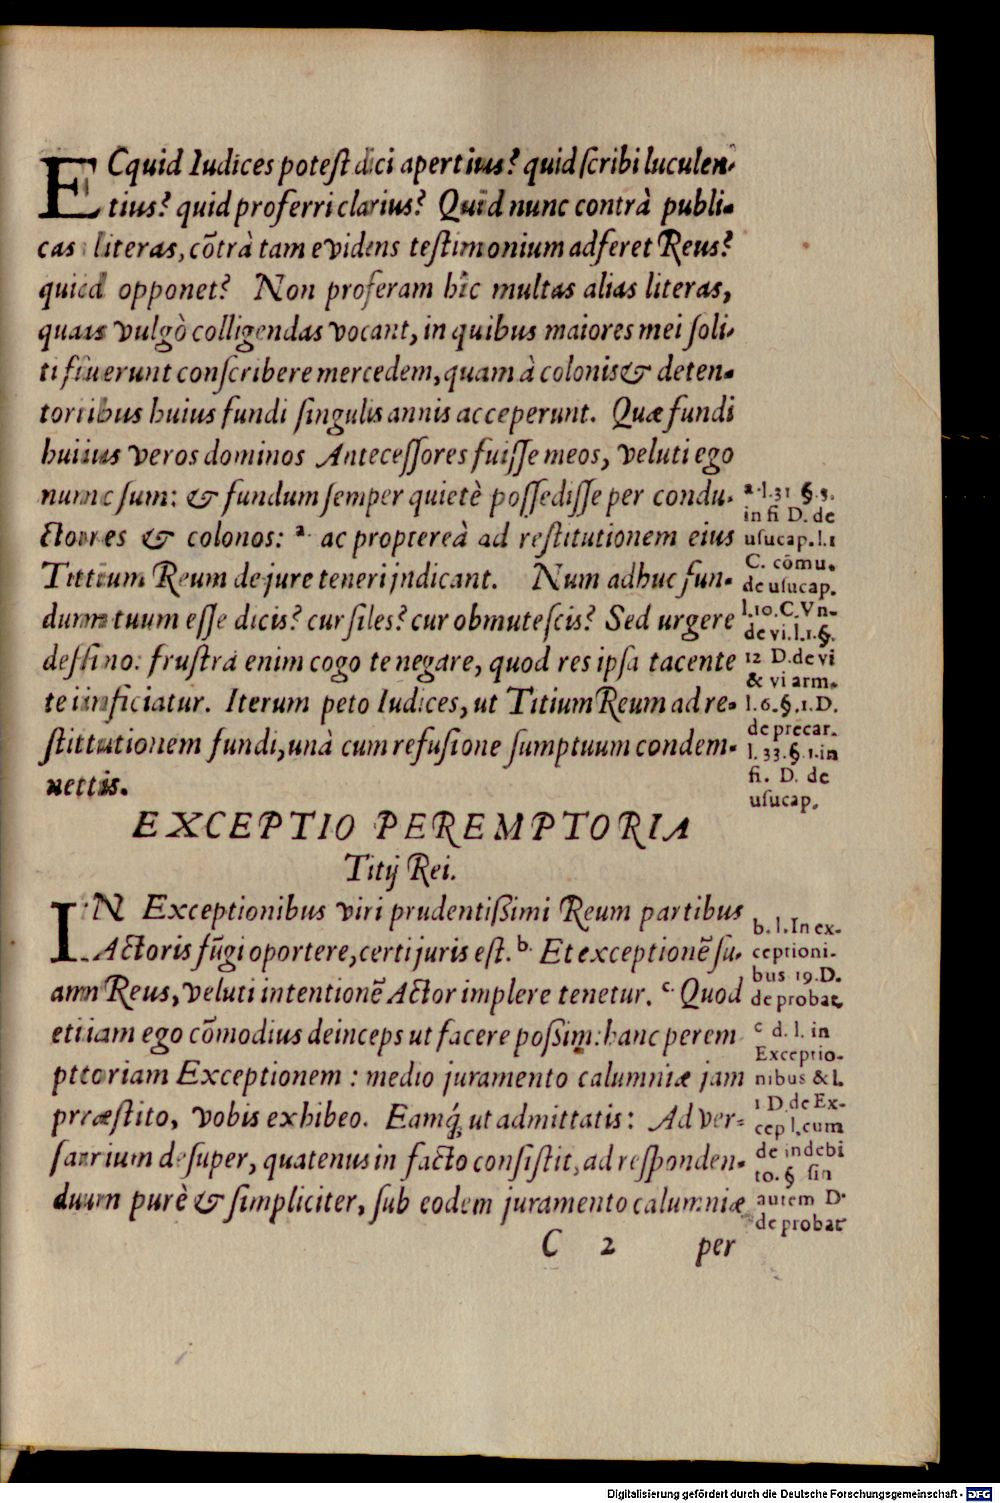 ECquid Iudices potest dici apertius? quid scribi luculen-
tius? quid proferri clarius? Quid nunc contrà publi-
cas literas, cõtrà tam evidens testimonium adferet Reus?
quid opponet? Non proferam hîc multas alias literas,
quas vulgò colligendas vocant, in quibus maiores mei soli-
ti fuerunt conscribere mercedem, quam à colonis & deten-
toribus huius fundi singulis annis acceperunt. Quæ fundi
huius veros dominos Antecessores fuisse meos, veluti ego
nunc sum: & fundum semper quietè possedisse per condu-
ctores & colonos: a. ac proptereà ad restitutionem eius
Titium Reum de jure teneri jndicant. Num adhuc fun-
dum tuum esse dicis? cur siles? cur obmutescis? Sed urgere
desino: frustrà enim cogo te negare, quod res ipsa tacente
te inficiatur. Iterum peto Iudices, ut Titium Reum ad re-
stitutionem fundi, unà cum refusione sumptuum condem-
netis.
a. l. 31 §. 5.
in fi D. de
usucap. l. 1
C. cõmu.
de usucap.
l. 10. C. Vn-
de vi. l. 1. §.
12 D. de vi
& vi arm.
l. 6. §. 1. D.
de precar.
l. 33. §. 1. in
fi. D. de
usucap.
EXCEPTIO PEREMPTORIA
Titij Rei.
IN Exceptionibus viri prudentißimi Reum partibus
Actoris fũgi oportere, certi juris est. b. Et exceptionẽ su-
am Reus, veluti intentionẽ Actor implere tenetur. c. Quod
etiam ego cõmodius deinceps ut facere poßim: hanc perem
ptoriam Exceptionem: medio juramento calumniæ jam
præstito, vobis exhibeo. Eamq́; ut admittatis: Adver-
sarium desuper, quatenus in facto consistit, ad responden-
dum purè & simpliciter, sub eodem juramento calumniæ
b. l. In ex-
ceptioni-
bus 19. D.
de probat.
c d. l. in
Exceptio-
nibus & l.
1 D. de Ex-
cep l. cum
de indebi
to. § sin
autem D.
de probat
C 2 per
Digitalisierung gefördert durch die Deutsche Forschungsgemeinschaft - DFG